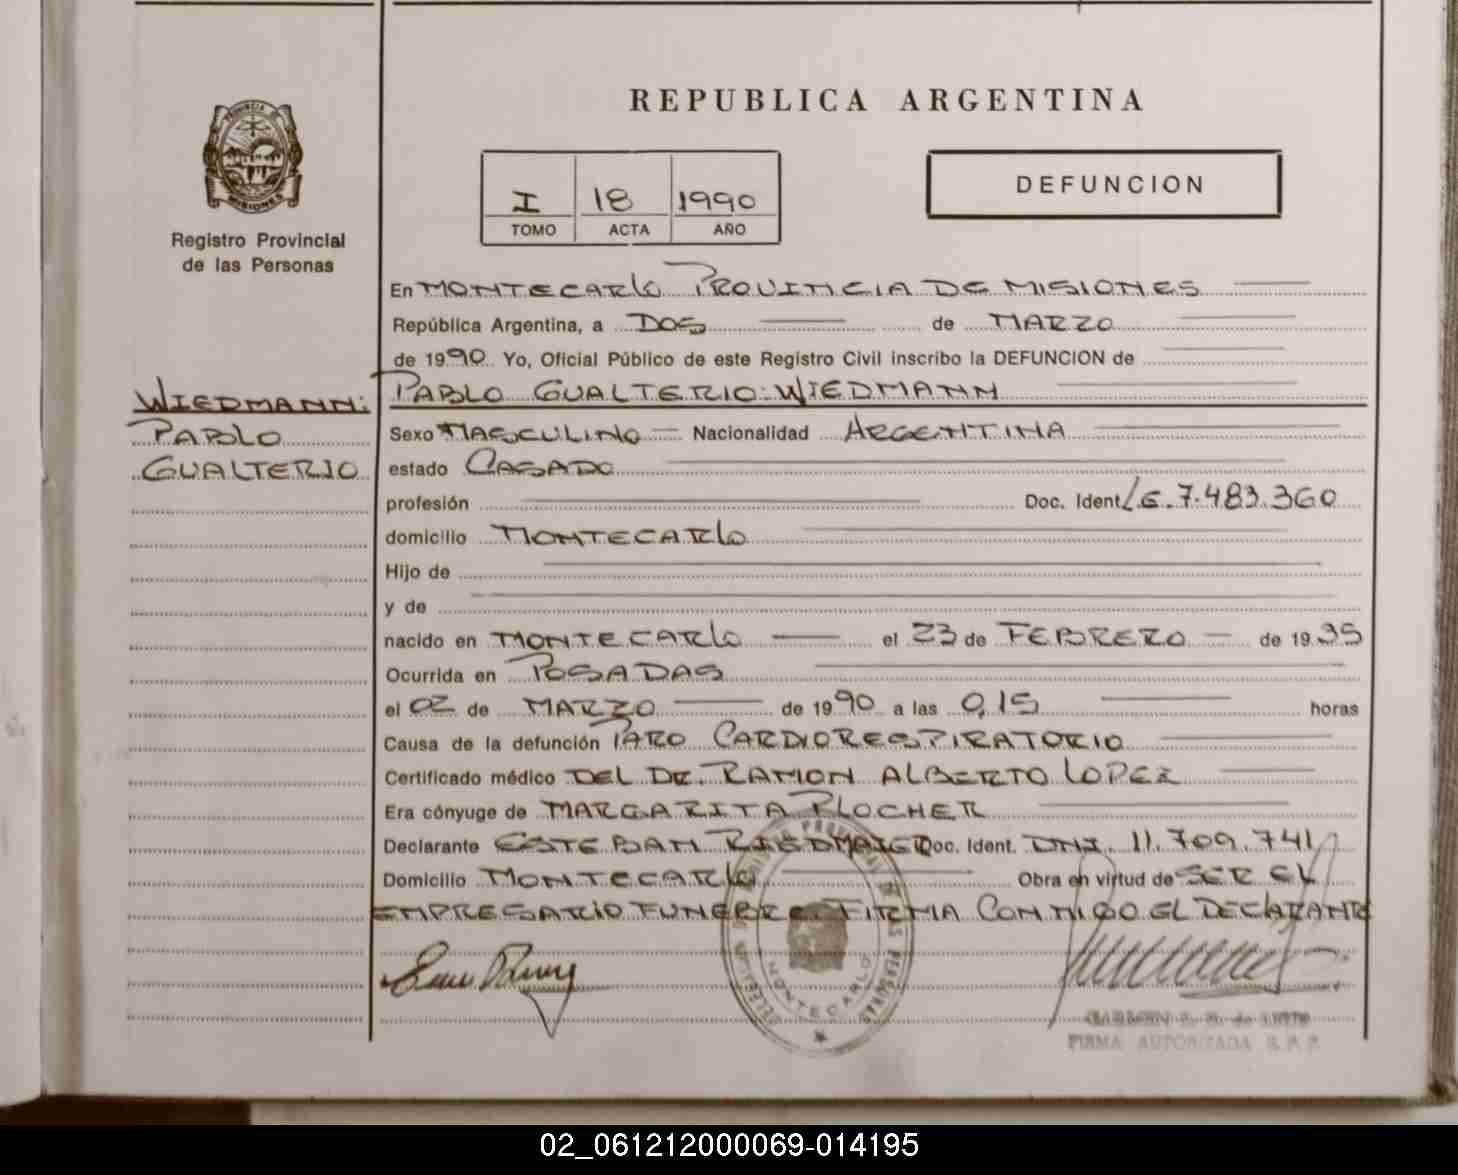 REPUBLICA ARGENTINA
PROVINCIA DE
MISIONES
Registro Provincial
de las Personas
I 18 1990
TOMO ACTA AÑO
DEFUNCION
En MONTECARLO PROVINCIA DE MISIONES
República Argentina, a DOS de MARZO
de 1990 Yo, Oficial Público de este Registro Civil inscribo la DEFUNCION de
PABLO GUALTERIO: WIEDMANN
WIEDMANN:
PABLO
GUALTERIO
Sexo MASCULINO Nacionalidad ARGENTINA
estado CASADO
profesión Doc. Ident. L.E. 7.483.360
domicilio MONTECARLO
Hijo de
y de
nacido en MONTECARLO el 23 de FEBRERO de 1935
Ocurrida en POSADAS
el 02 de MARZO de 1990 a las 0,15 horas
Causa de la defunción PARO CARDIORESPIRATORIO
Certificado médico DEL DR. RAMON ALBERTO LOPEZ
Era cónyuge de MARGARITA PLOCHER
Declarante ESTEBAN RIEDMAIER Doc. Ident. DNI. 11.709.741
Domicilio MONTECARLO Obra en virtud de SER EL
EMPRESARIO FUNEBRE. FIRMA CONMIGO EL DECLARANTE
MONTECARLO
FIRMA AUTORIZADA R. P. P.
02_061212000069-014195